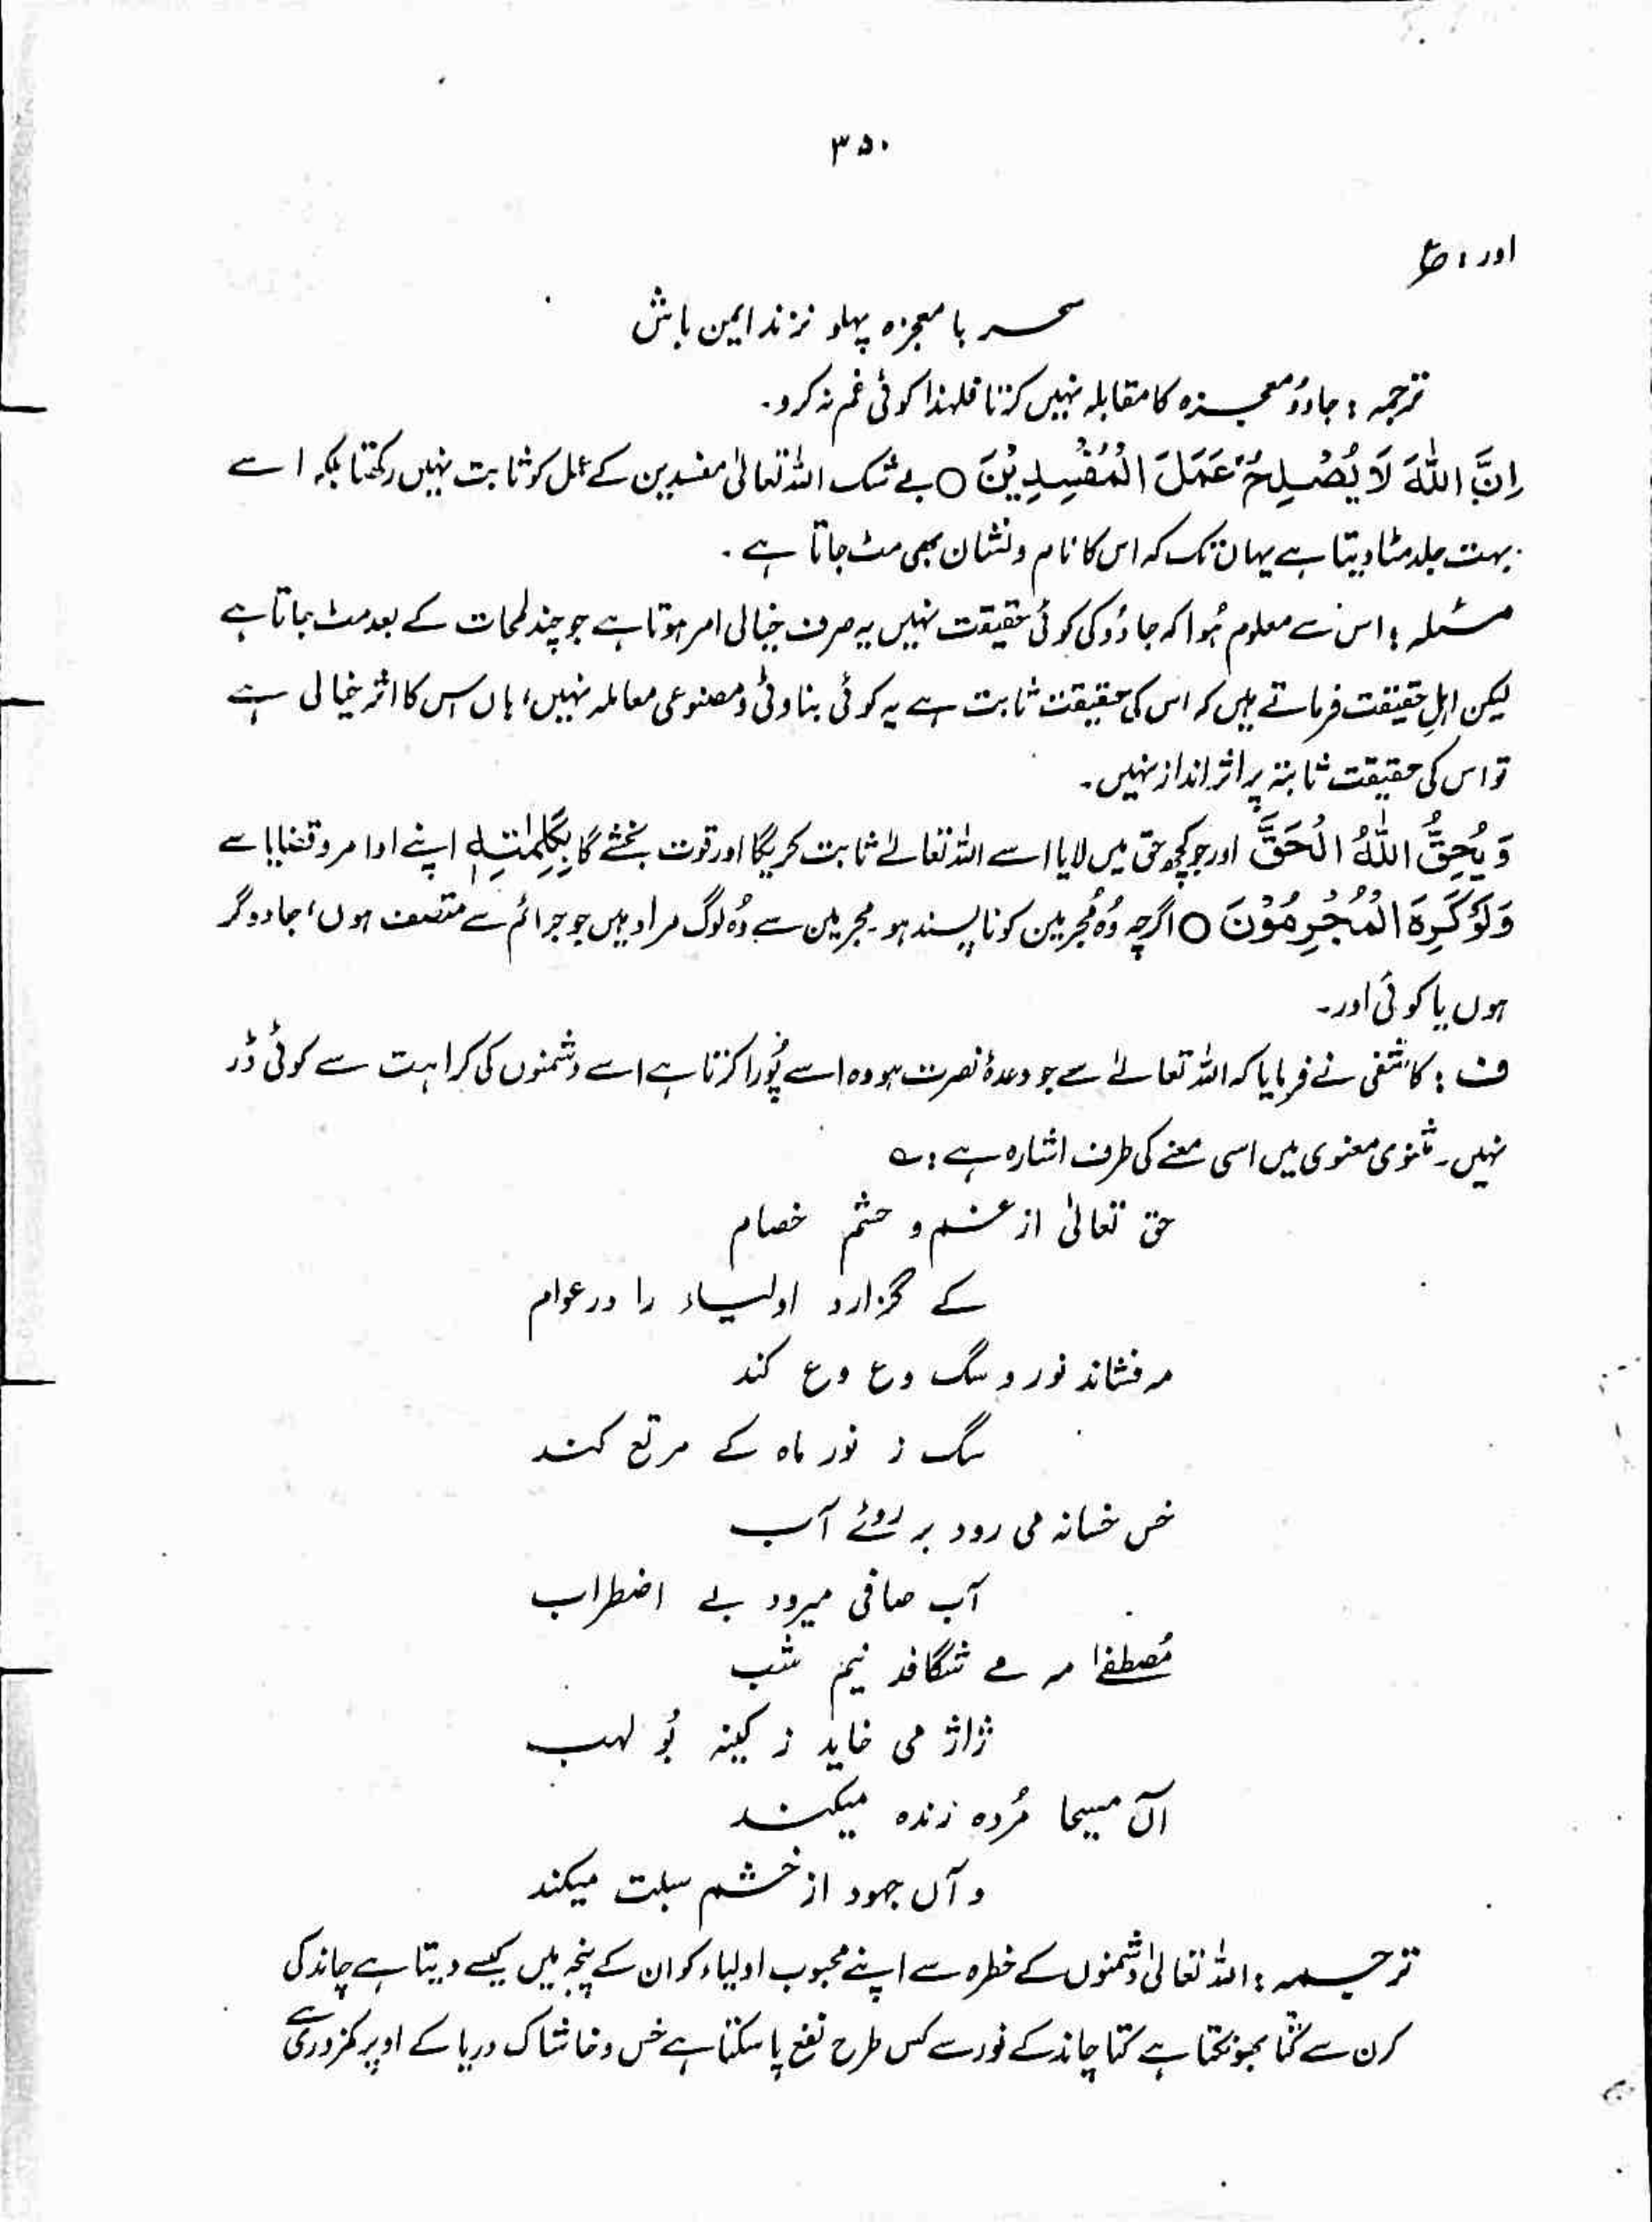 ۳۵۰
اور : ؏
سحر با معجزہ پہلو نزند ایمن باش
ترجمہ : جادُو معجزہ کا مقابلہ نہیں کرتا فلہٰذا کوئی غم نہ کرو۔
اِنَّ اللّٰہَ لَا یُصْلِحُ عَمَلَ الْمُفْسِدِیْنَ ○ بے شک اللہ تعالیٰ مفسدین کے عمل کو ثابت نہیں رکھتا بلکہ اسے
بہت جلد مٹا دیتا ہے یہاں تک کہ اس کا نام و نشان بھی مٹ جاتا ہے ۔
مسئلہ : اس سے معلوم ہُوا کہ جادُو کی کوئی حقیقت نہیں یہ صرف خیالی امر ہوتا ہے جو چند لمحات کے بعد مٹ جاتا ہے
لیکن اہلِ حقیقت فرماتے ہیں کہ اس کی حقیقت ثابت ہے یہ کوئی بناوٹی و مصنوعی معاملہ نہیں، ہاں اس کا اثر خیالی ہے
تو اس کی حقیقت ثابتہ پر اثر انداز نہیں۔
وَ یُحِقُّ اللّٰہُ الْحَقَّ اور جو کچھ حق میں لایا اسے اللہ تعالےٰ ثابت کریگا اور قوت بخشے گا بِکَلِمٰتِہٖ اپنے اوامر و قضایا سے
وَلَوْ کَرِہَ الْمُجْرِمُوْنَ ○ اگرچہ وُہ مُجرمین کو ناپسند ہو۔ مجرمین سے وُہ لوگ مراد ہیں جو جرائم سے متصف ہوں، جادوگر
ہوں یا کوئی اور۔
ف : کاشفی نے فرمایا کہ اللہ تعالےٰ سے جو وعدۂ نصرت ہو وہ اسے پُورا کرتا ہے اسے دشمنوں کی کراہت سے کوئی ڈر
نہیں۔ مثنوی معنوی میں اسی معنے کی طرف اشارہ ہے : ؎
حق تعالیٰ از غم و خشم خصام
کے گزارد اولیاء را در عوام
مہ فشاند نور و سگ وع وع کند
سگ ز نور ماہ کے مرتع کند
خس خسانہ می رود بر روئے آب
آب صافی میرود بے اضطراب
مُصطفےٰ مہ مے شگافد نیم شب
ژاژ می خاید ز کینہ بُو لہب
آں مسیحا مُردہ زندہ میکند
و آں جہود از خشم سبلت میکند
ترجمہ : اللہ تعالیٰ دشمنوں کے خطرہ سے اپنے محبوب اولیاء کو ان کے پنجہ میں کیسے دیتا ہے چاند کی
کرن سے کُتّا بھونکتا ہے کتا چاند کے نور سے کس طرح نفع پا سکتا ہے خس و خاشاک دریا کے اوپر کمزوری سے